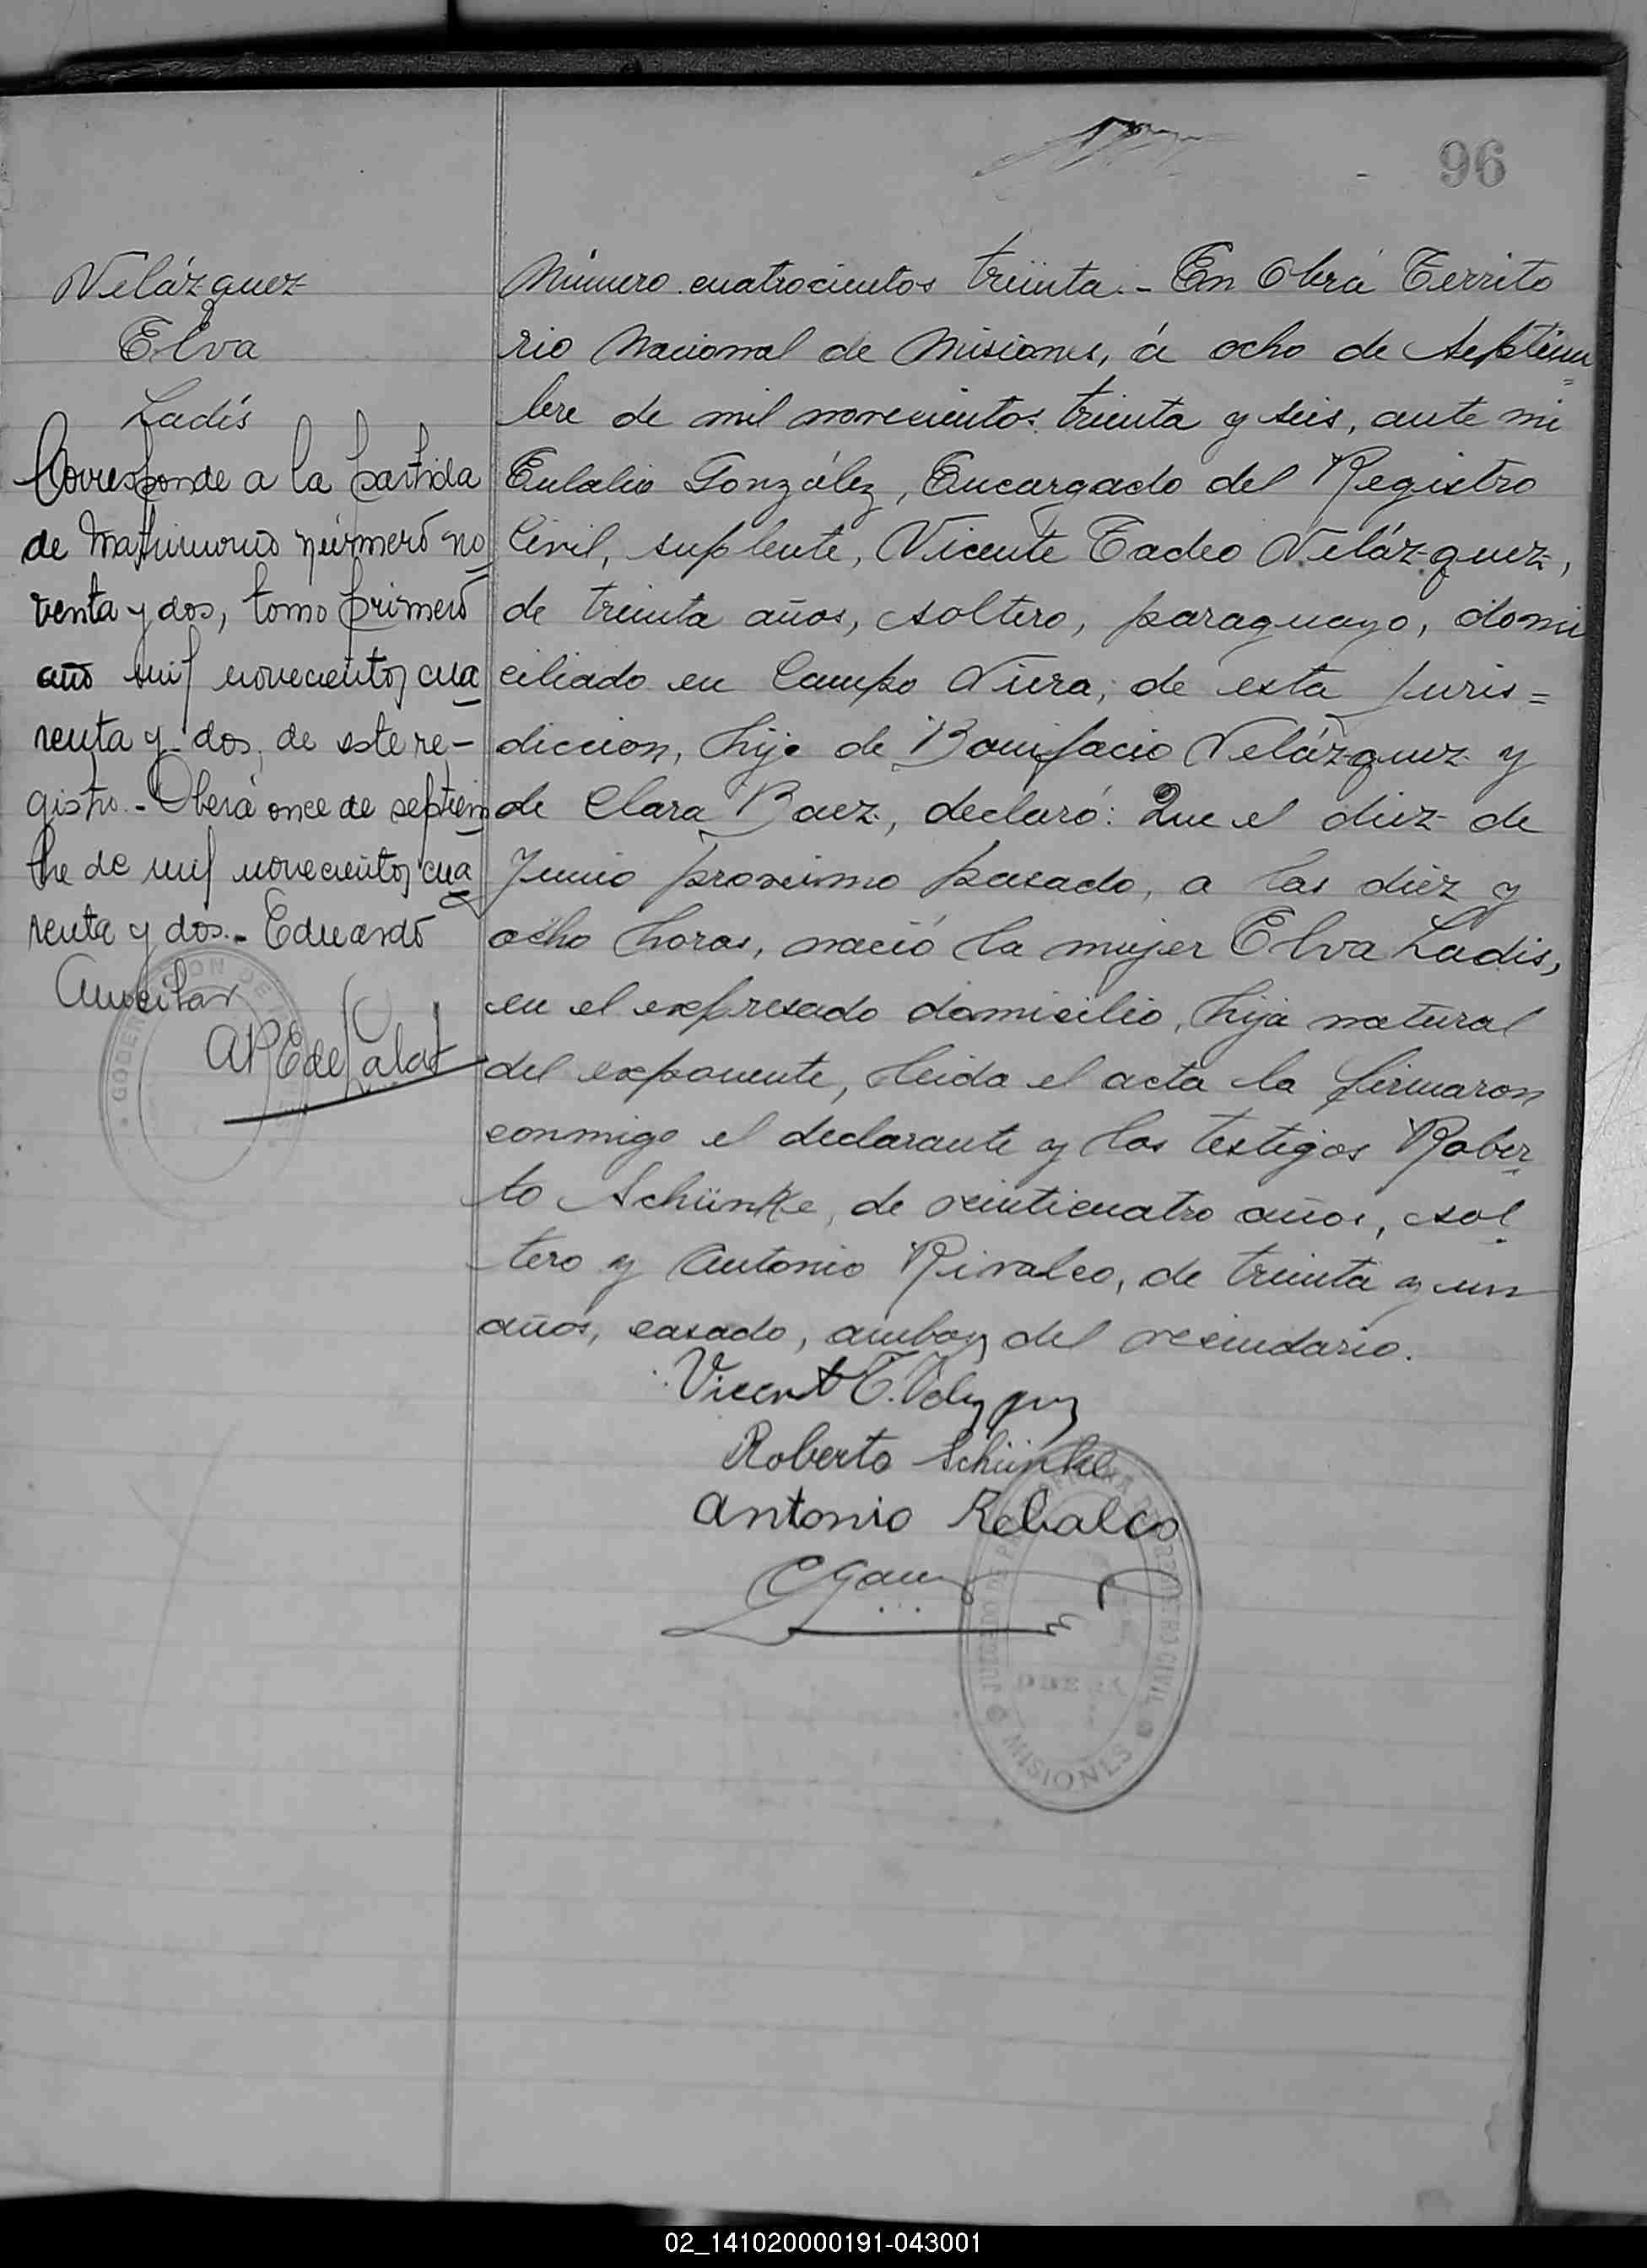 96
Velázquez
Elva
Ladis
Corresponde a la partida
de Matrimonio número no
venta y dos, tomo primero
año mil novecientos cua
renta y dos, de este re-
gistro.- Oberá once de septiem
bre de mil novecientos cua
renta y dos.- Eduardo
Número cuatrocientos treinta.- En Oberá Territo
rio Nacional de Misiones, á ocho de Septiem
bre de mil novecientos treinta y seis, ante mi
Eulalio González, Encargado del Registro
Civil, suplente, Vicente Tadeo Velázquez,
de treinta años, soltero, paraguayo, domi
ciliado en Campo Viera, de esta juris=
diccion, hijo de Bonifacio Velázquez y
de Clara Baez, declaró: Que el diez de
Junio proximo pasado, a las diez y
ocho horas, nació la mujer Elva Ladis,
en el expresado domicilio, hija natural
del exponente, leida el acta la firmaron
conmigo el declarante y los testigos Rober
to Schünke, de veinticuatro años, sol
tero y Antonio Rivalco, de treinta y un
años, casado, ambos del vecindario.
Vicente T. Velazquez
Roberto Schünke
Antonio Rebalco
REGISTRO CIVIL
OBERA
MISIONES
02_141020000191-043001